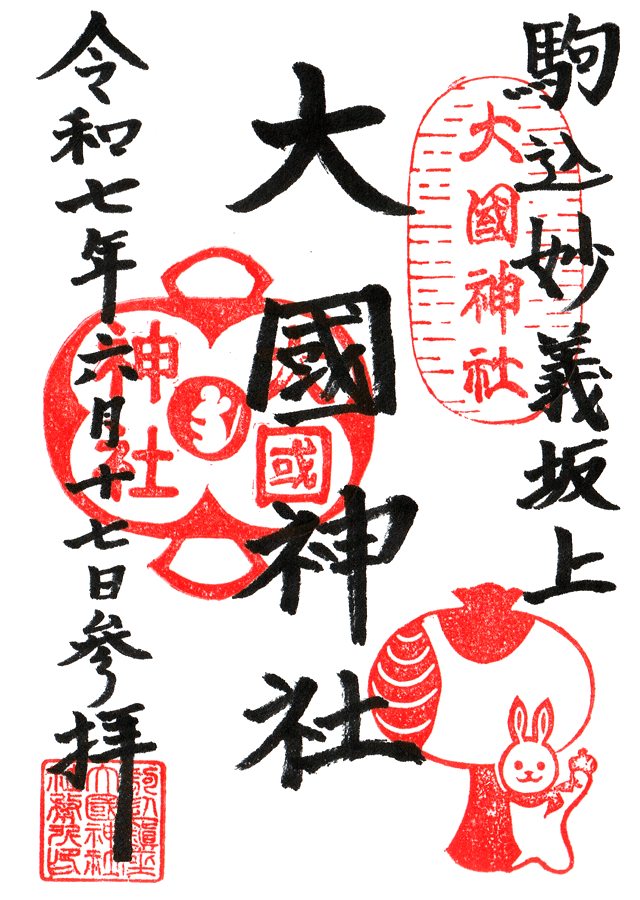 駒込妙義坂上
大國神社
大國神社
大國神社
令和七年六月十七日參拝